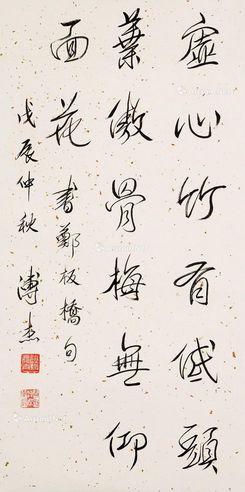 虛心竹有低頭
葉傲骨梅無仰
面花 書鄭板橋句
戊辰仲秋 溥杰